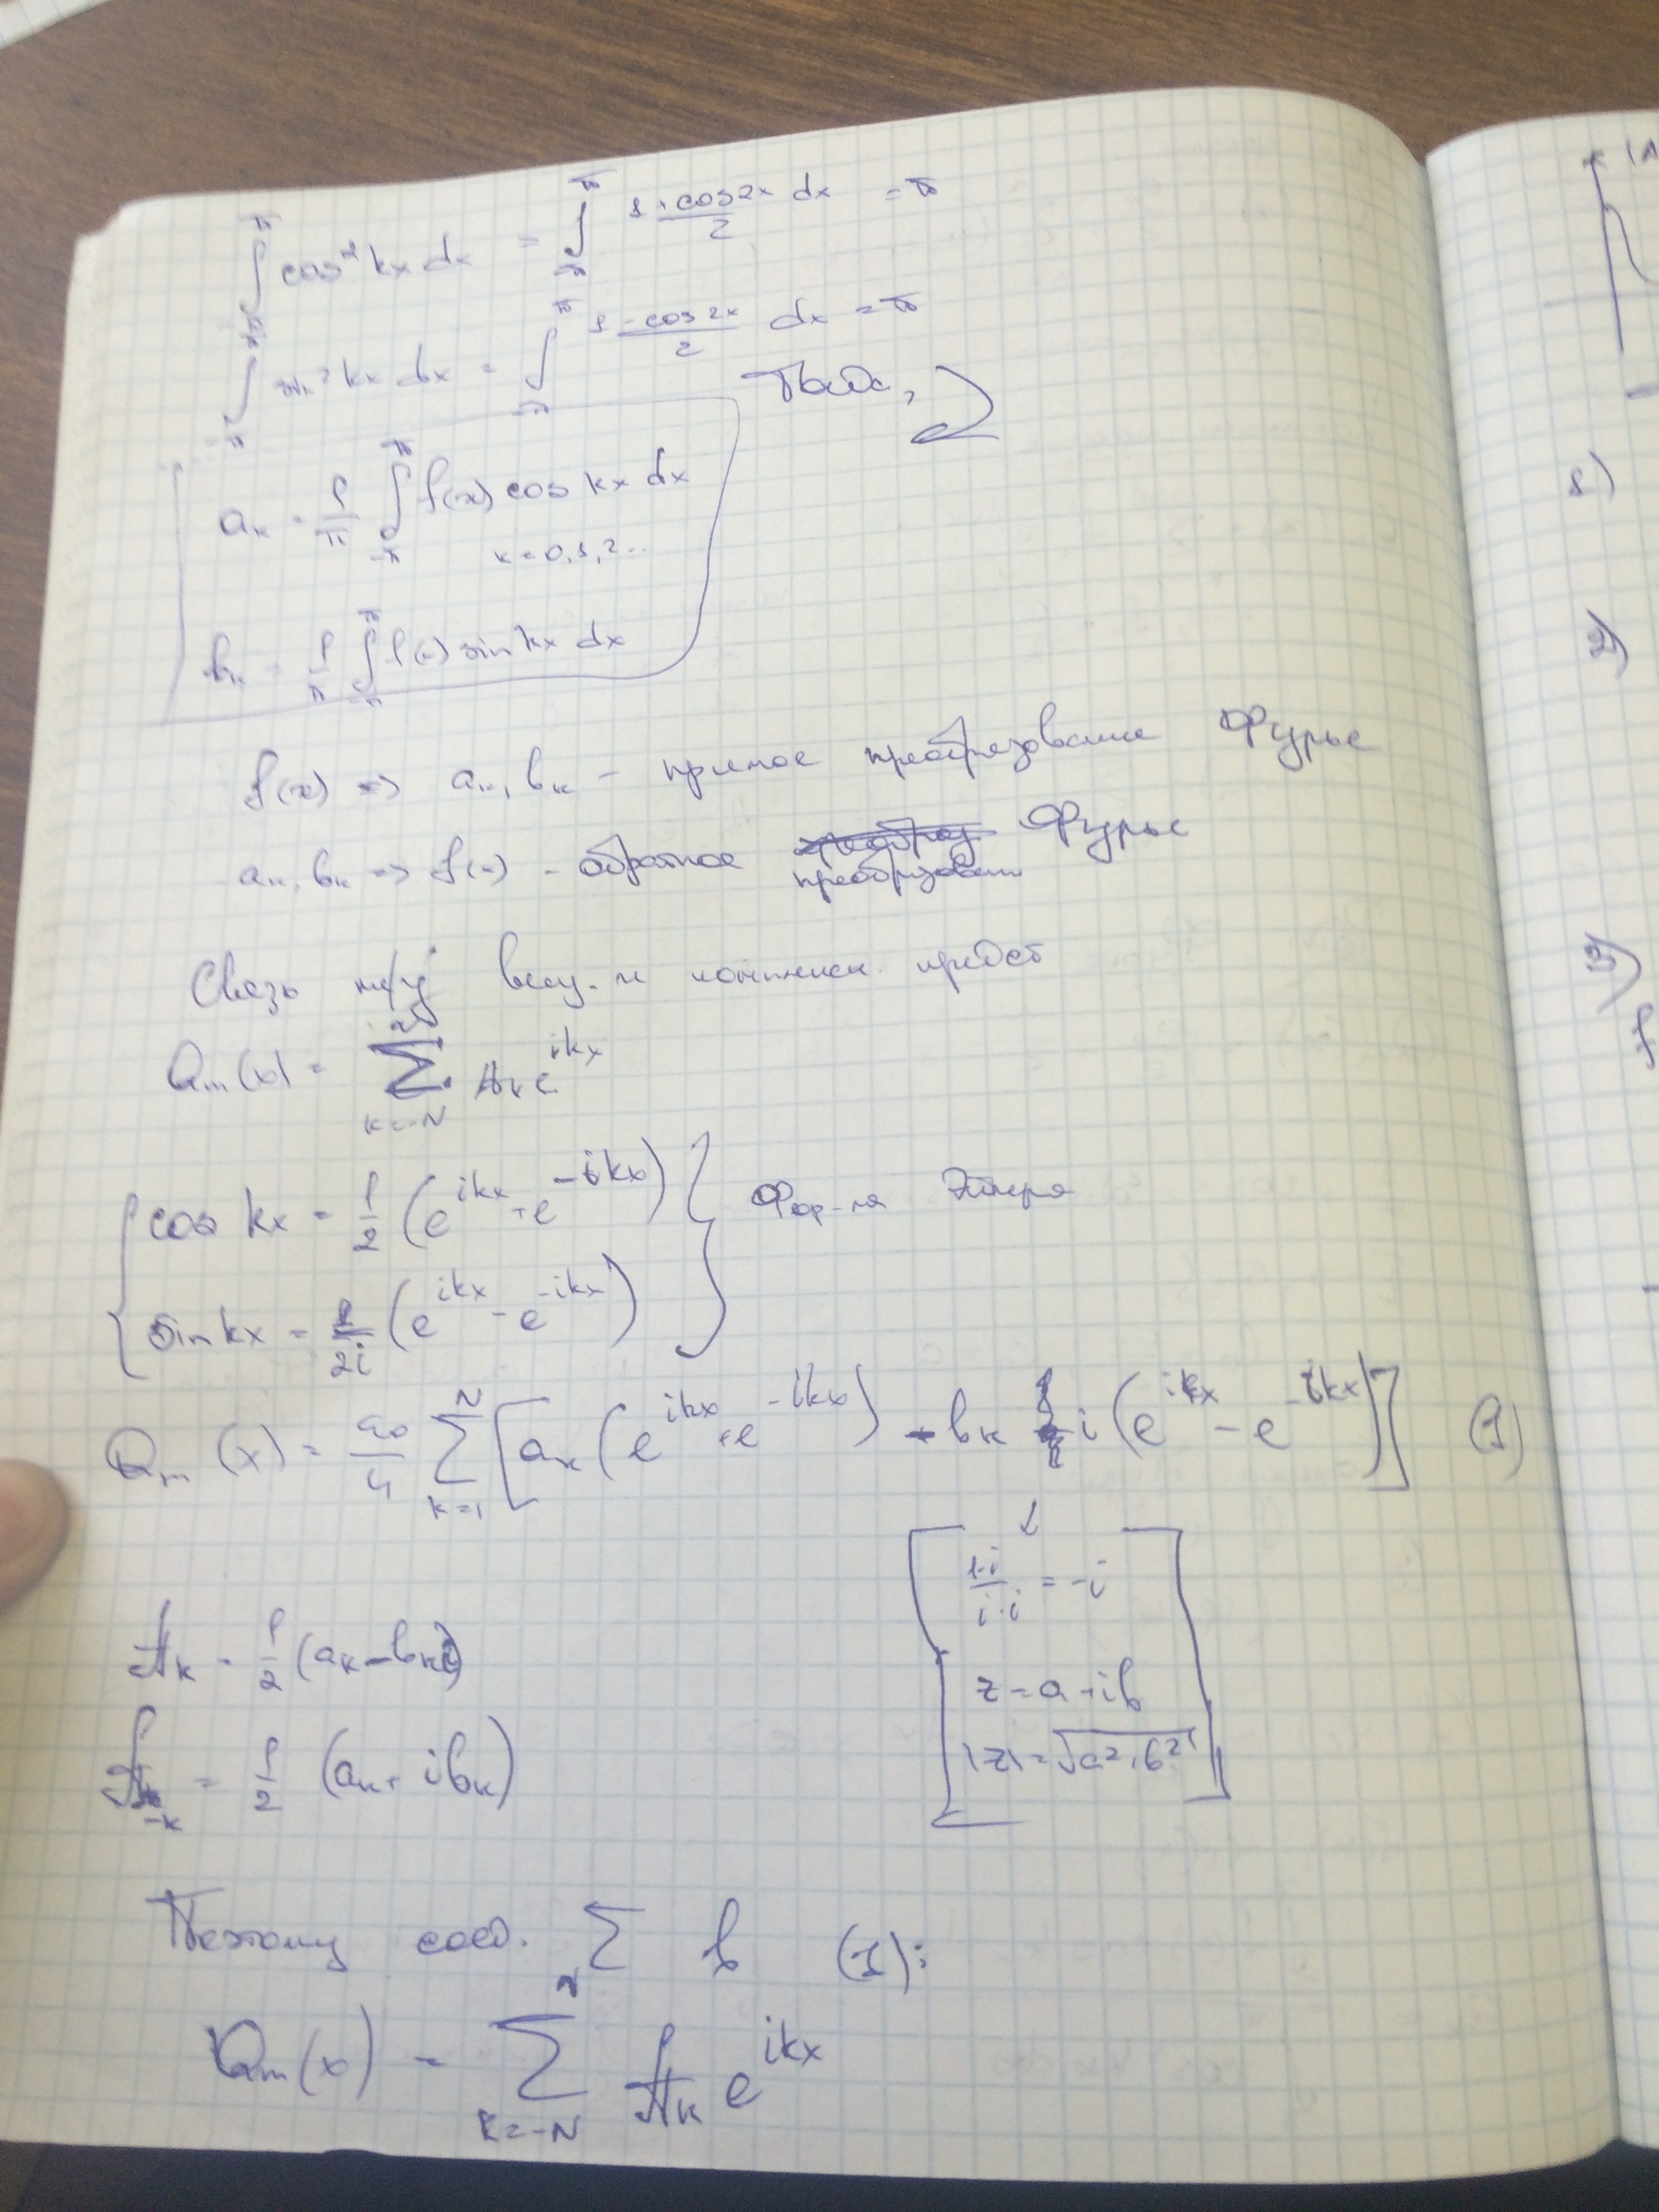 ∫_{-π}^{π} cos² kx dx = ∫_{-π}^{π} (1+cos2x)/2 dx = π
∫_{-π}^{π} sin² kx dx = ∫_{-π}^{π} (1-cos2x)/2 dx = π
a_k = 1/π ∫_{-π}^{π} f(x) cos kx dx
k=0,1,2...
b_k = 1/π ∫_{-π}^{π} f(x) sin kx dx
f(x) => a_k, b_k - прямое преобразование Фурье
a_k, b_k => f(x) - обратное преобразован Фурье
Связь м/у вещ. и комплекс. предст
Q_m(x) = ∑_{k=-N}^{N} A_k e^{ikx}
cos kx = 1/2 (e^{ikx} + e^{-ikx})
Фор-ла Эйлера
sin kx = 1/2i (e^{ikx} - e^{-ikx})
Q_m (x) = a_0/4 ∑_{k=1}^{N} [a_k (e^{ikx} + e^{-ikx}) - b_k i (e^{ikx} - e^{-ikx})] (1)
↓
1·i/i·i = -i
A_k = 1/2 (a_k - b_k i)
z = a + ib
A_{-k} = 1/2 (a_k + i b_k)
|z| = √(a²+b²)
Поэтому ∑ в (1):
Q_m(x) = ∑_{k=-N}^{N} A_k e^{ikx}
1)
2)
3)
f